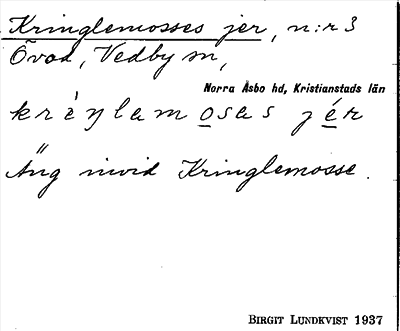 Kringlemosses jer, n:r 3
Övad, Vedby sn,
Norra Åsbo hd, Kristianstads län
krèŋlamosas jér
Äng invid Kringlemosse.
BIRGIT LUNDKVIST 1937